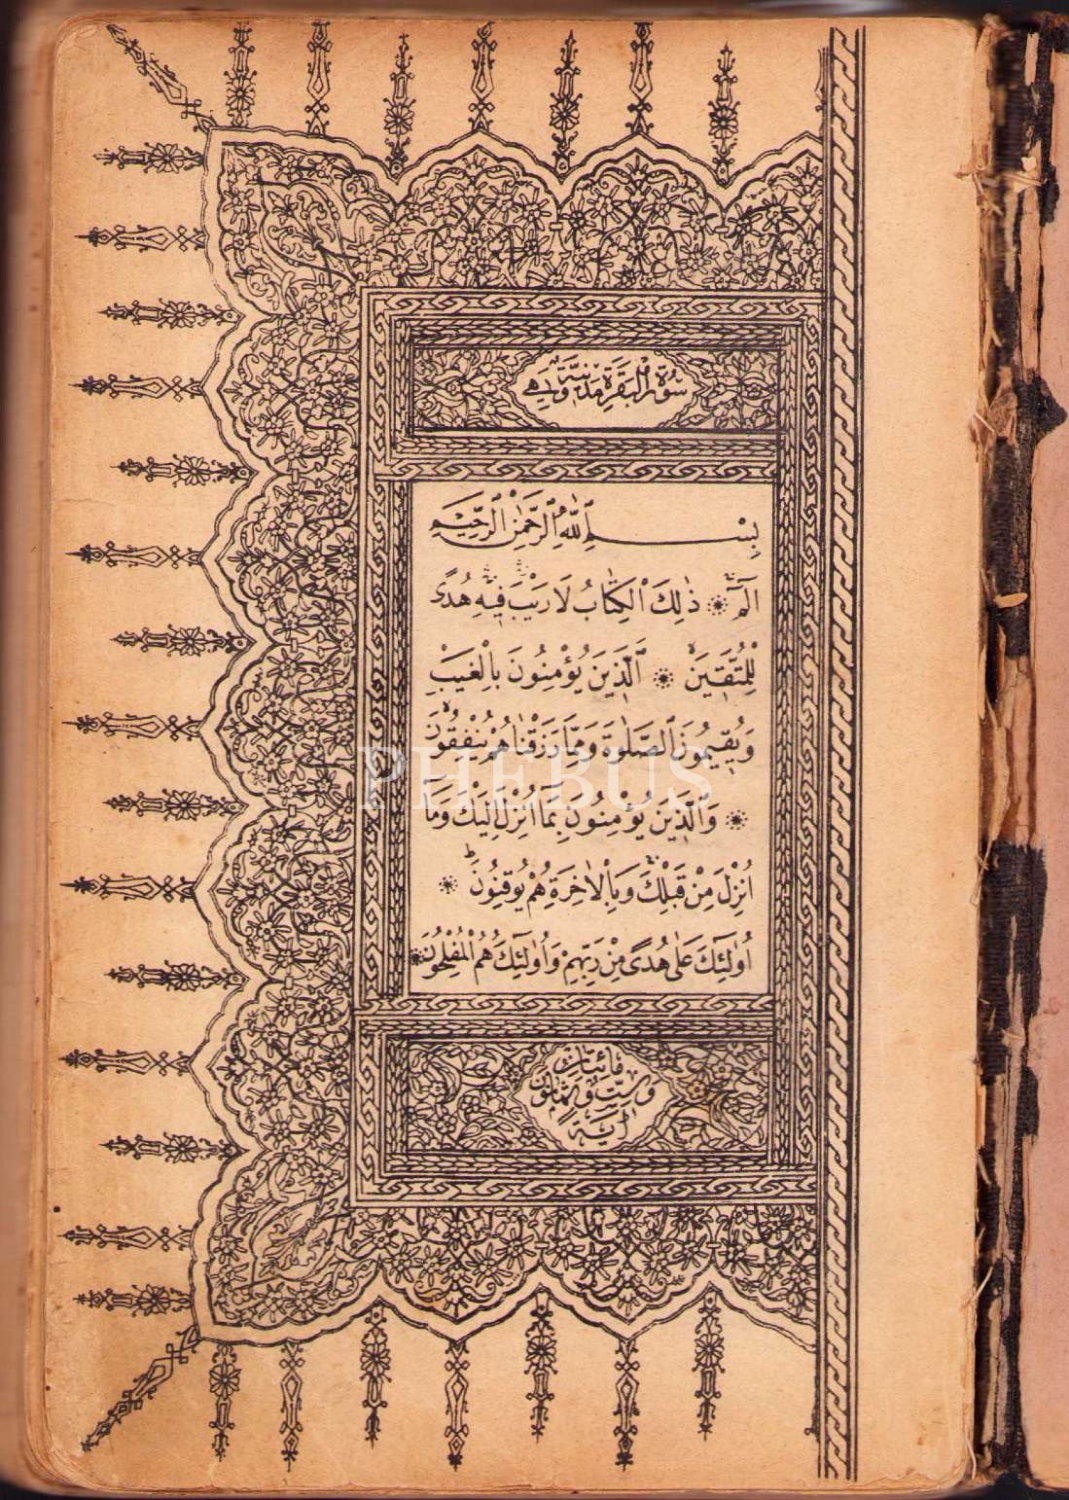 سُورَةُ الْبَقَرَةِ مَدَنِيَّةٌ وَهِيَ
بِسْمِ اللّٰهِ الرَّحْمٰنِ الرَّحِيمِ
الٓمٓ ۞ ذٰلِكَ الْكِتَابُ لَا رَيْبَ فِيهِ هُدًى
لِلْمُتَّقِينَ ۞ اَلَّذِينَ يُؤْمِنُونَ بِالْغَيْبِ
وَيُقِيمُونَ الصَّلٰوةَ وَمِمَّا رَزَقْنَاهُمْ يُنْفِقُونَ
۞ وَالَّذِينَ يُؤْمِنُونَ بِمَا اُنْزِلَ اِلَيْكَ وَمَا
اُنْزِلَ مِنْ قَبْلِكَ وَبِالْاٰخِرَةِ هُمْ يُوقِنُونَ ۞
اُولٰٓئِكَ عَلٰى هُدًى مِنْ رَبِّهِمْ وَاُولٰٓئِكَ هُمُ الْمُفْلِحُونَ ۞
مائتان
وست وثمانون
آية
PHEBUS